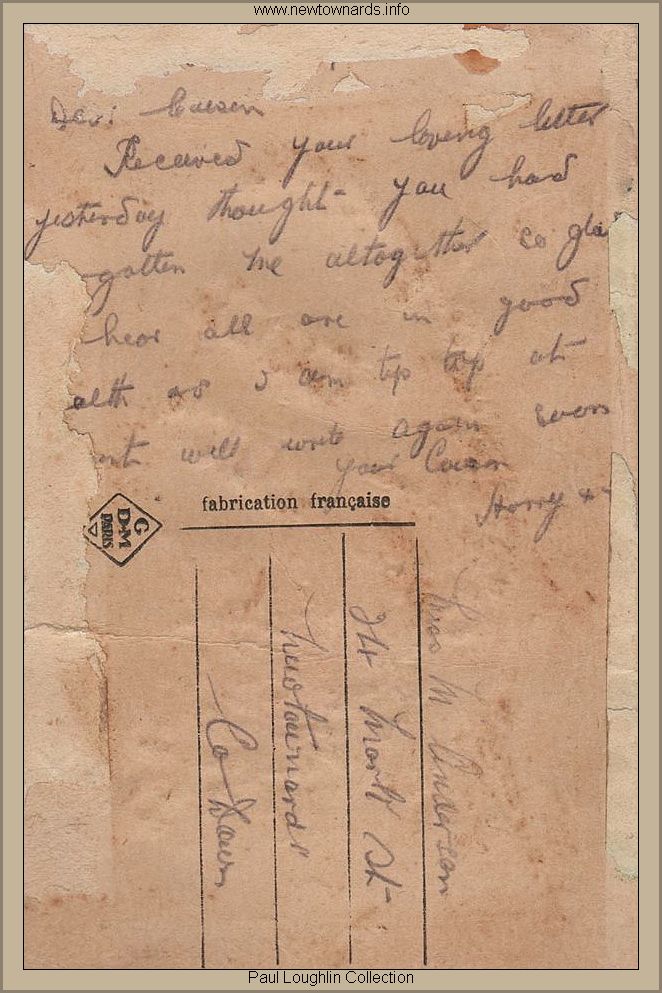 www.newtownards.info
Dear Cousin
Received your loving letter
yesterday thought you had
gotten me altogether so gla
hear all are in good
alth as I am tip top at
nt will write again soon
your Cousin
Harry
fabrication française
G
D·M
PARIS
Miss M Anderson
Mark St
Newtownards
Co Down
Paul Loughlin Collection